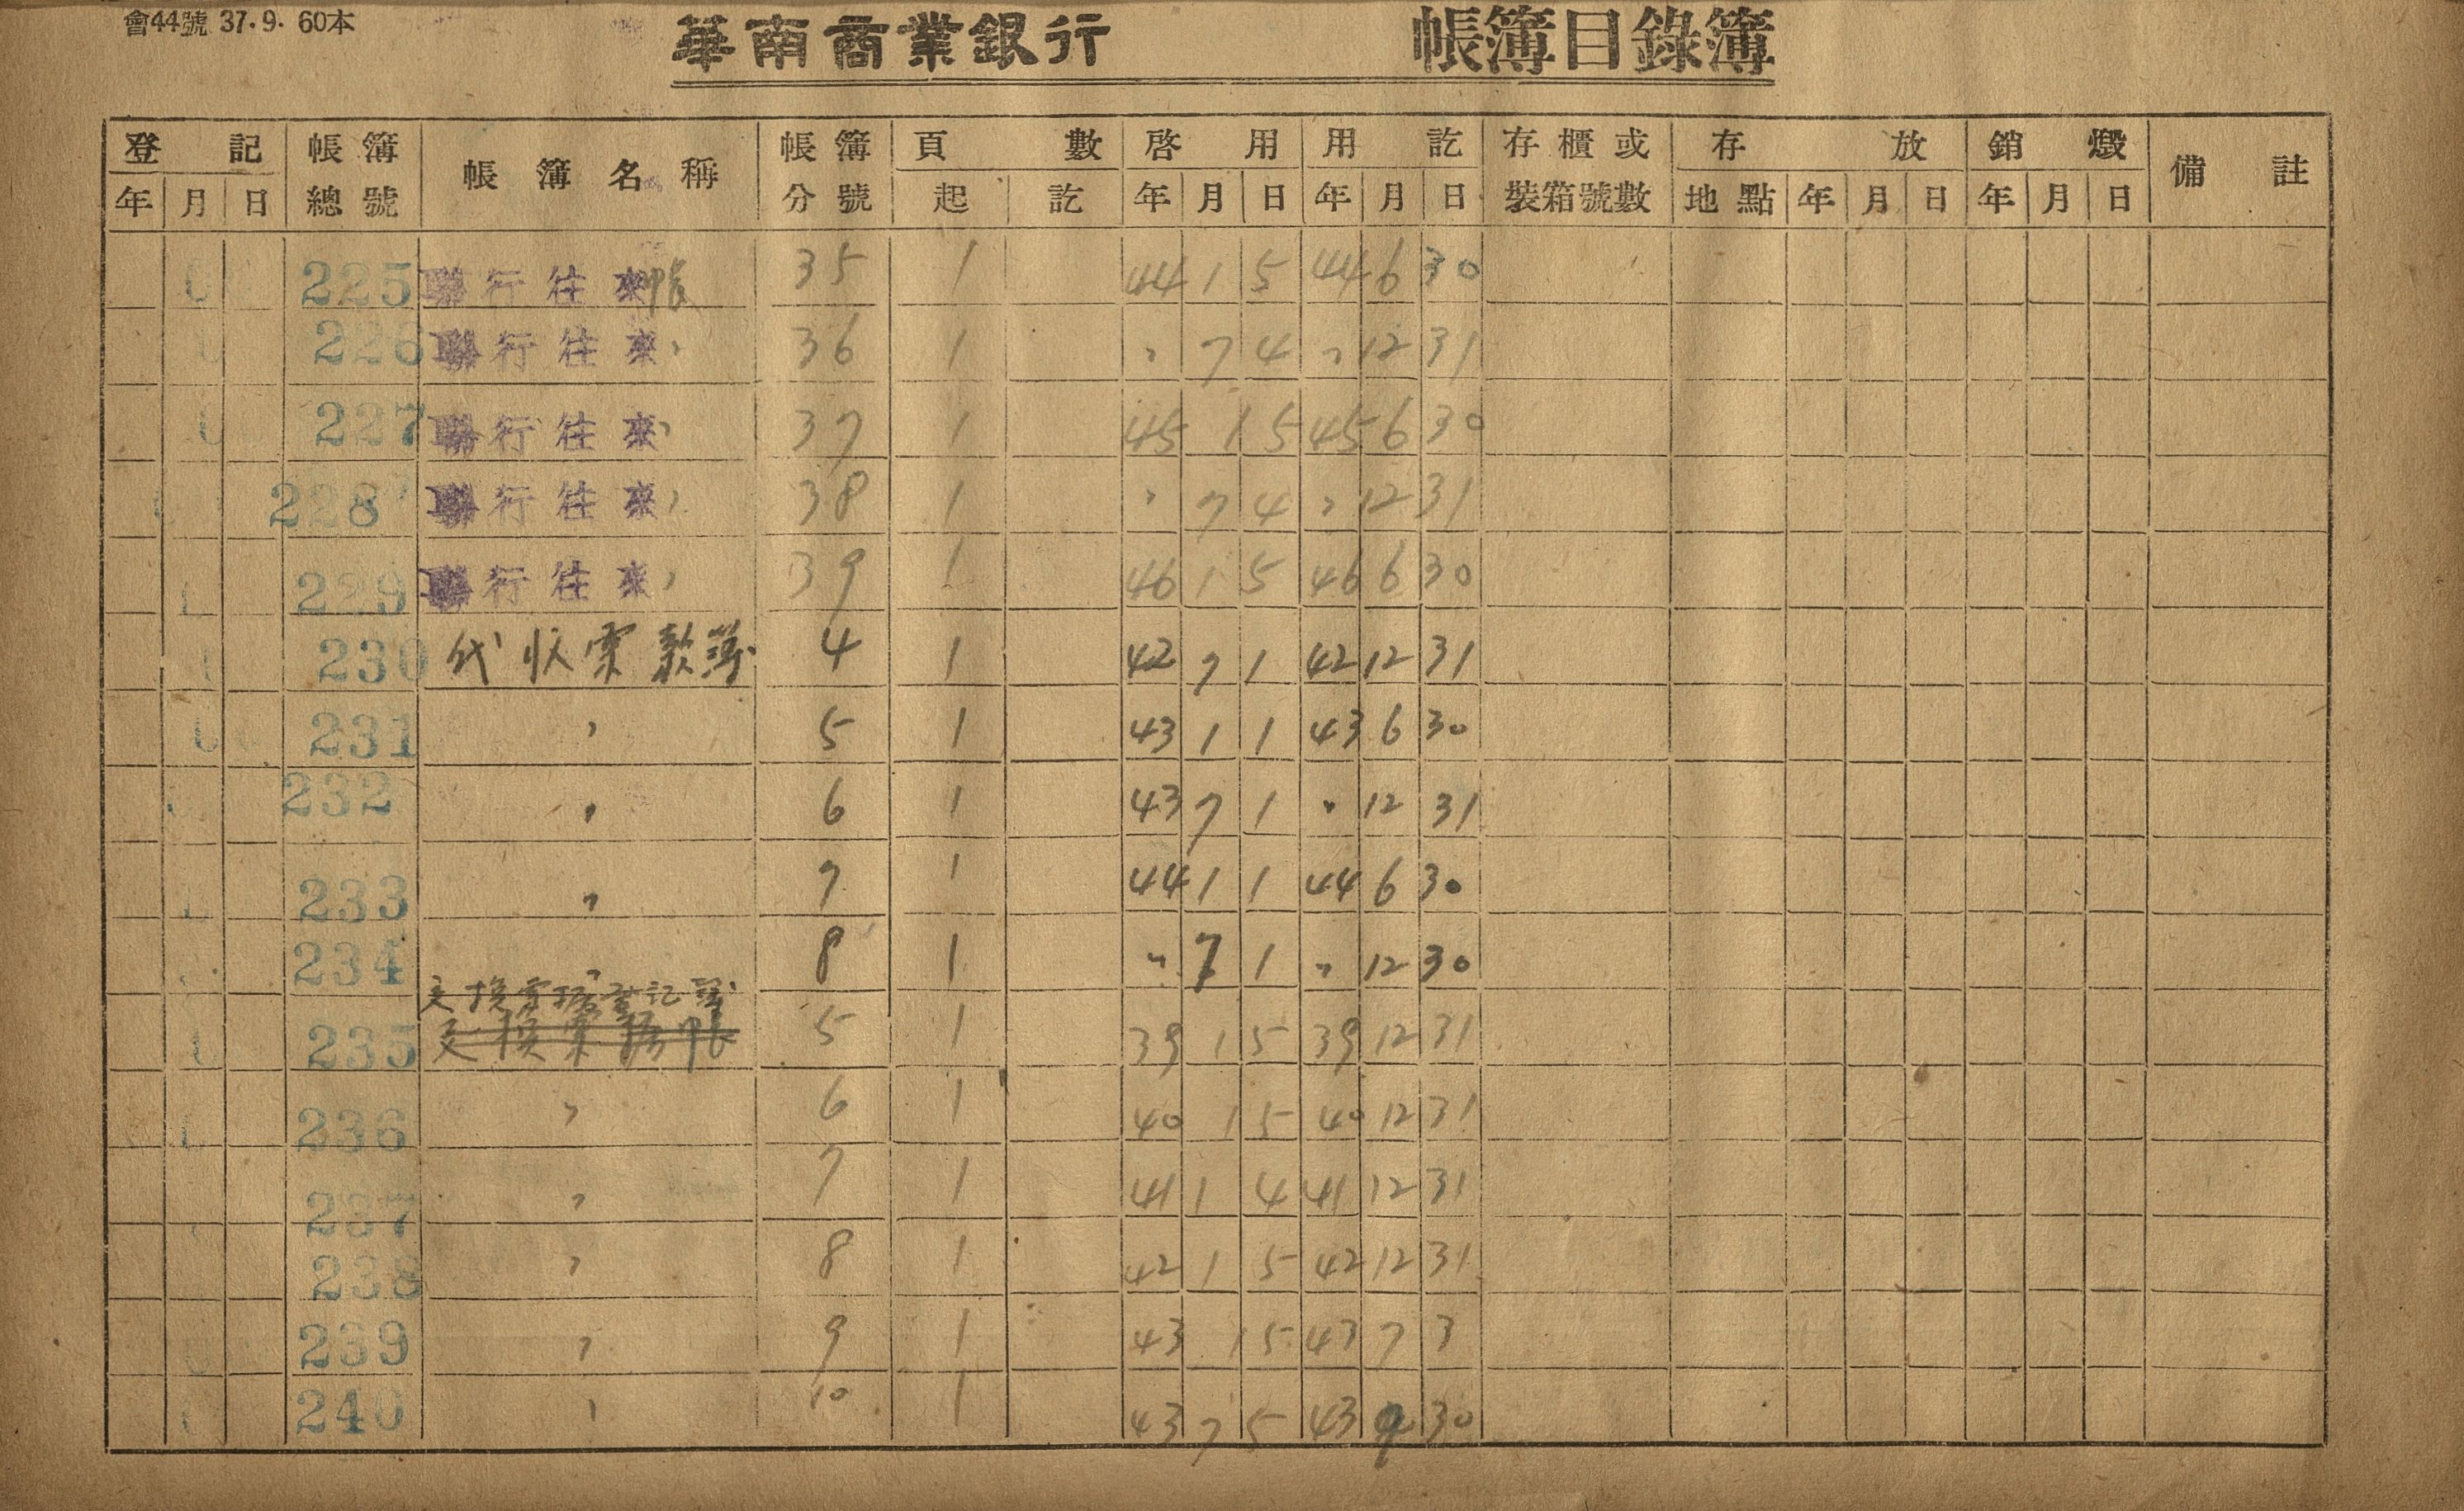 會44號 37.9. 60本
華南商業銀行 帳簿目錄簿
登記 帳簿 帳簿名稱 帳簿 頁數 啓用 用訖 存櫃或 存放 銷燬 備註
年 月 日 總號 分號 起 訖 年 月 日 年 月 日 裝箱號數 地點 年 月 日 年 月 日
225 聯行往來帳 35 1 44 1 5 44 6 30
226 聯行往來〃 36 1 〃 7 4 〃 12 31
227 聯行往來〃 37 1 45 1 5 45 6 30
228 聯行往來〃 38 1 〃 7 4 〃 12 31
229 聯行往來〃 39 1 46 1 5 46 6 30
230 代收票款簿 4 1 42 7 1 42 12 31
231 〃 5 1 43 1 1 43 6 30
232 〃 6 1 43 7 1 〃 12 31
233 〃 7 1 44 1 1 44 6 30
234 〃 8 1 〃 7 1 〃 12 30
交換票據登記簿
235 交換票據帳 5 1 39 1 5 39 12 31
236 〃 6 1 40 1 5 40 12 31
237 〃 7 1 41 1 4 41 12 31
238 〃 8 1 42 1 5 42 12 31
239 〃 9 1 43 1 5 43 7 3
240 〃 10 1 43 7 5 43 9 30